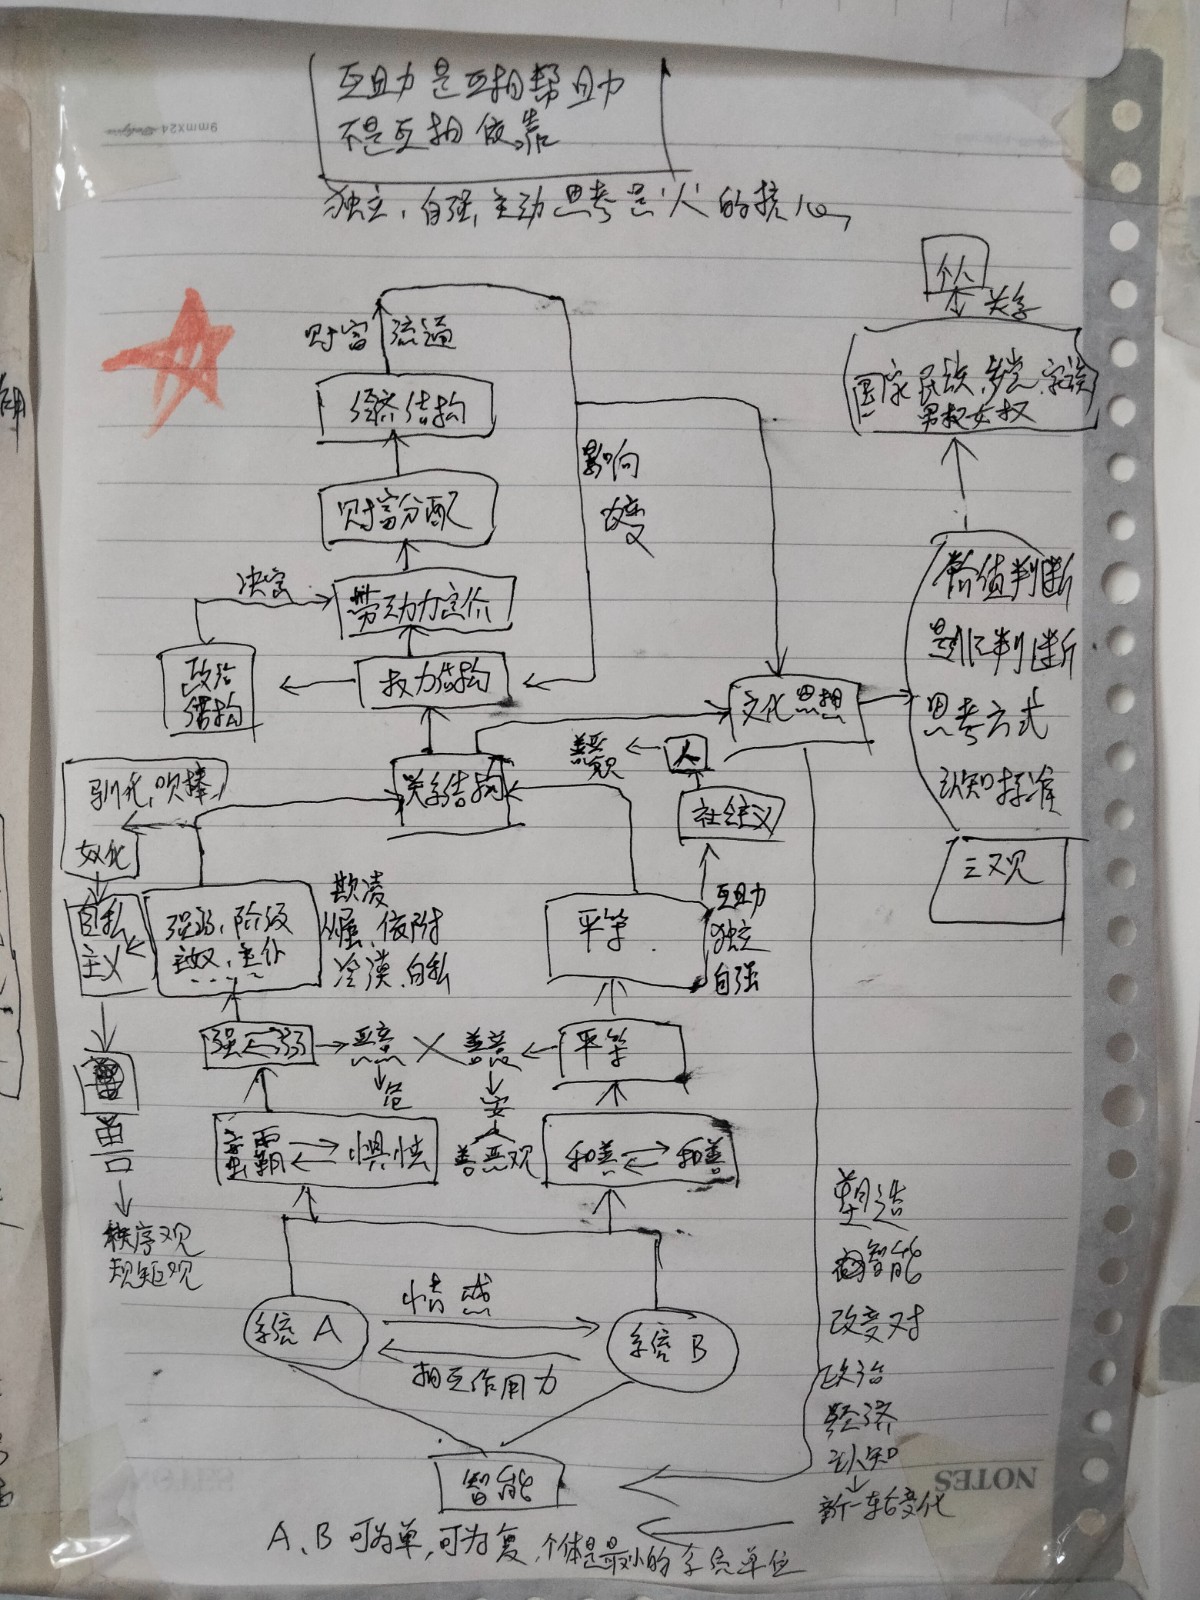 互助力是互相帮助力
不是互相依靠
9mmx24
独立,自强,主动思考是"人"的核心
个人
关系
财富流通
国家民族,party,家族
男权女权
经济结构
影响
改变
财富分配
价值判断
决定
劳动力定价
是非判断
政治
结构
权力结构
文化思想
思考方式
善恶观
人
驯化,吹捧
关系结构
认知标准
社会主义
奴化
三观
自私
主义
强弱,阶级
主奴,主仆
欺凌
依附
冷漠,自私
平等
互助
独立
自强
强 弱
恶意
善意
平等
危
安
兽
蛮霸
惧怯
善恶观
和善
和善
秩序观
规矩观
塑造
智能
改变对
情感
系统A
系统B
相互作用力
政治
经济
认知
智能
NOTES
新一轮变化
A、B可为单,可为复,个体是最小的系统单位